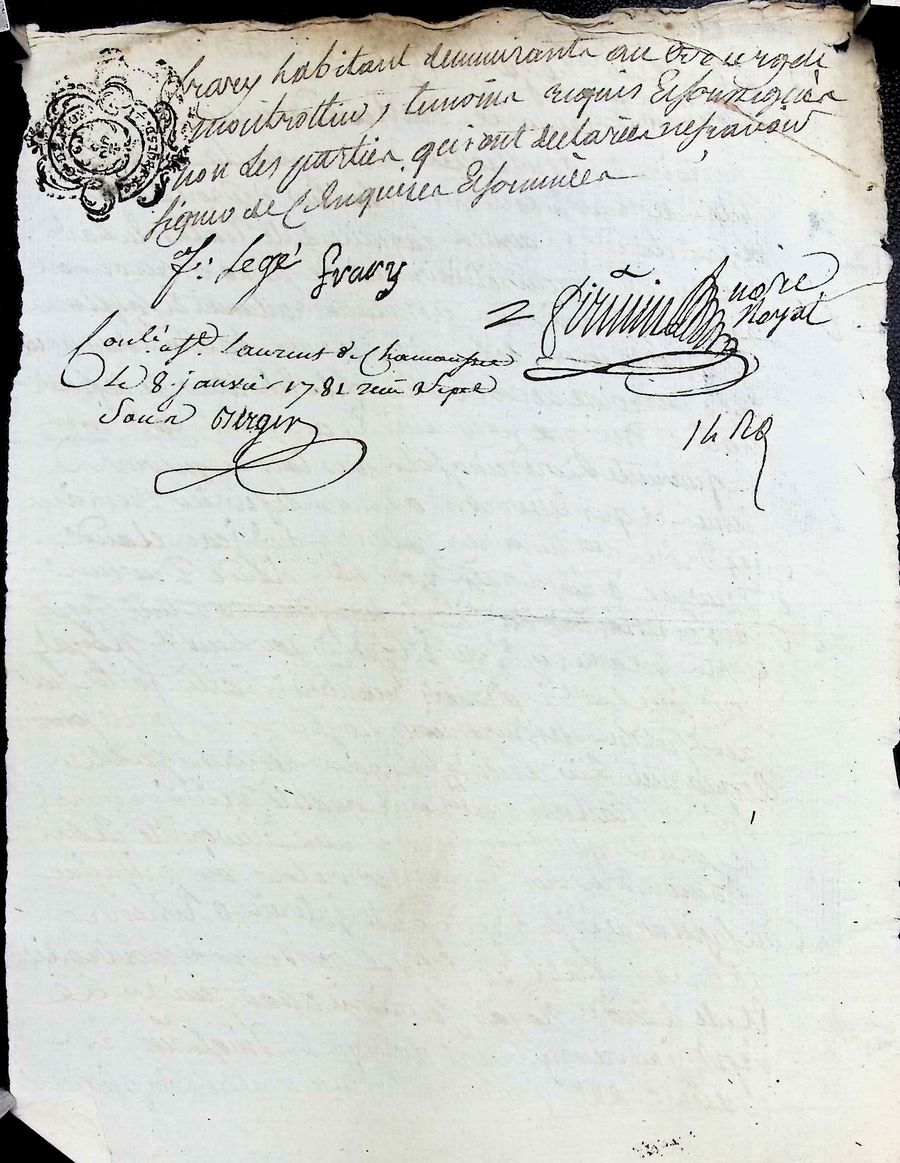 frary habitant demeurants au Bourg de
montrottier, temoins requis & soussignés
non les parties qui ont declarées ne savoir
signer de ce enquises & sommées
F: Legé frary
notre Royal
Conlé. à St. Laurent de Chamousset
Le 8. janvier 1781 reçu
Sous Bergir
14